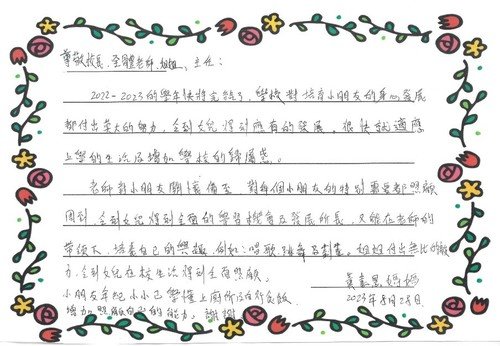 尊敬校長、全體老師、姐姐、主任：
2022-2023的學年快將完結了，學校對培育小朋友的身心發展
都付出莫大的努力，令到女兒得到應有的發展，很快就適應
上學的生活及增加學校的歸屬感。
老師對小朋友關懷備至，對每個小朋友的特別需要都照顧
周到，令到女兒得到全面的學習機會及發展所長，又能在老師的
帶領下，培養自己的興趣，例如：唱歌、跳舞及劃畫。姐姐付出無比的努
力，令到女兒在校生活得到全面照顧。
小朋友年紀小小已學懂上廁所及自行食飯，
增加照顧自己的能力，謝謝！
黃 媽媽
2023年8月23日